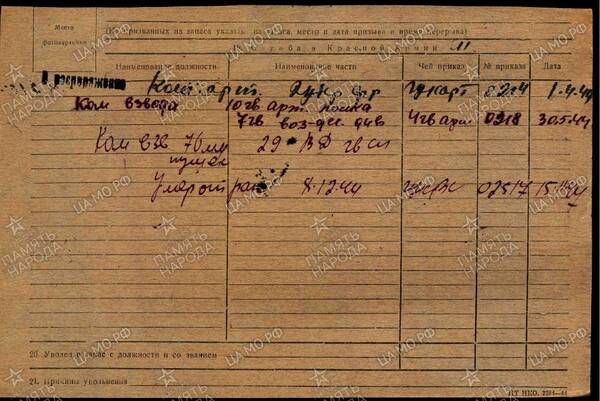 Место
фотокарточки
(Для призванных из запаса указать из запаса, место и дата призыва и время перерыва)
Служба в Красной Армии 11
Наименование должности Наименование части Чей приказ № приказа Дата
В распоряжение Ком. арт. 2 укр фр 0214 1.4.44
Ком взвода 10 гв арт. полка
7 гв воз-дес. див 4 гв арм. 0918 30.5.44
Ком взв 76 мм 29 ВД гв сп
пушек
Умер от ран 8.12.44 02517
20. Уволен в запас с должности и со званием
21. Причина увольнения
ПАМЯТЬ НАРОДА
ЦА МО.РФ